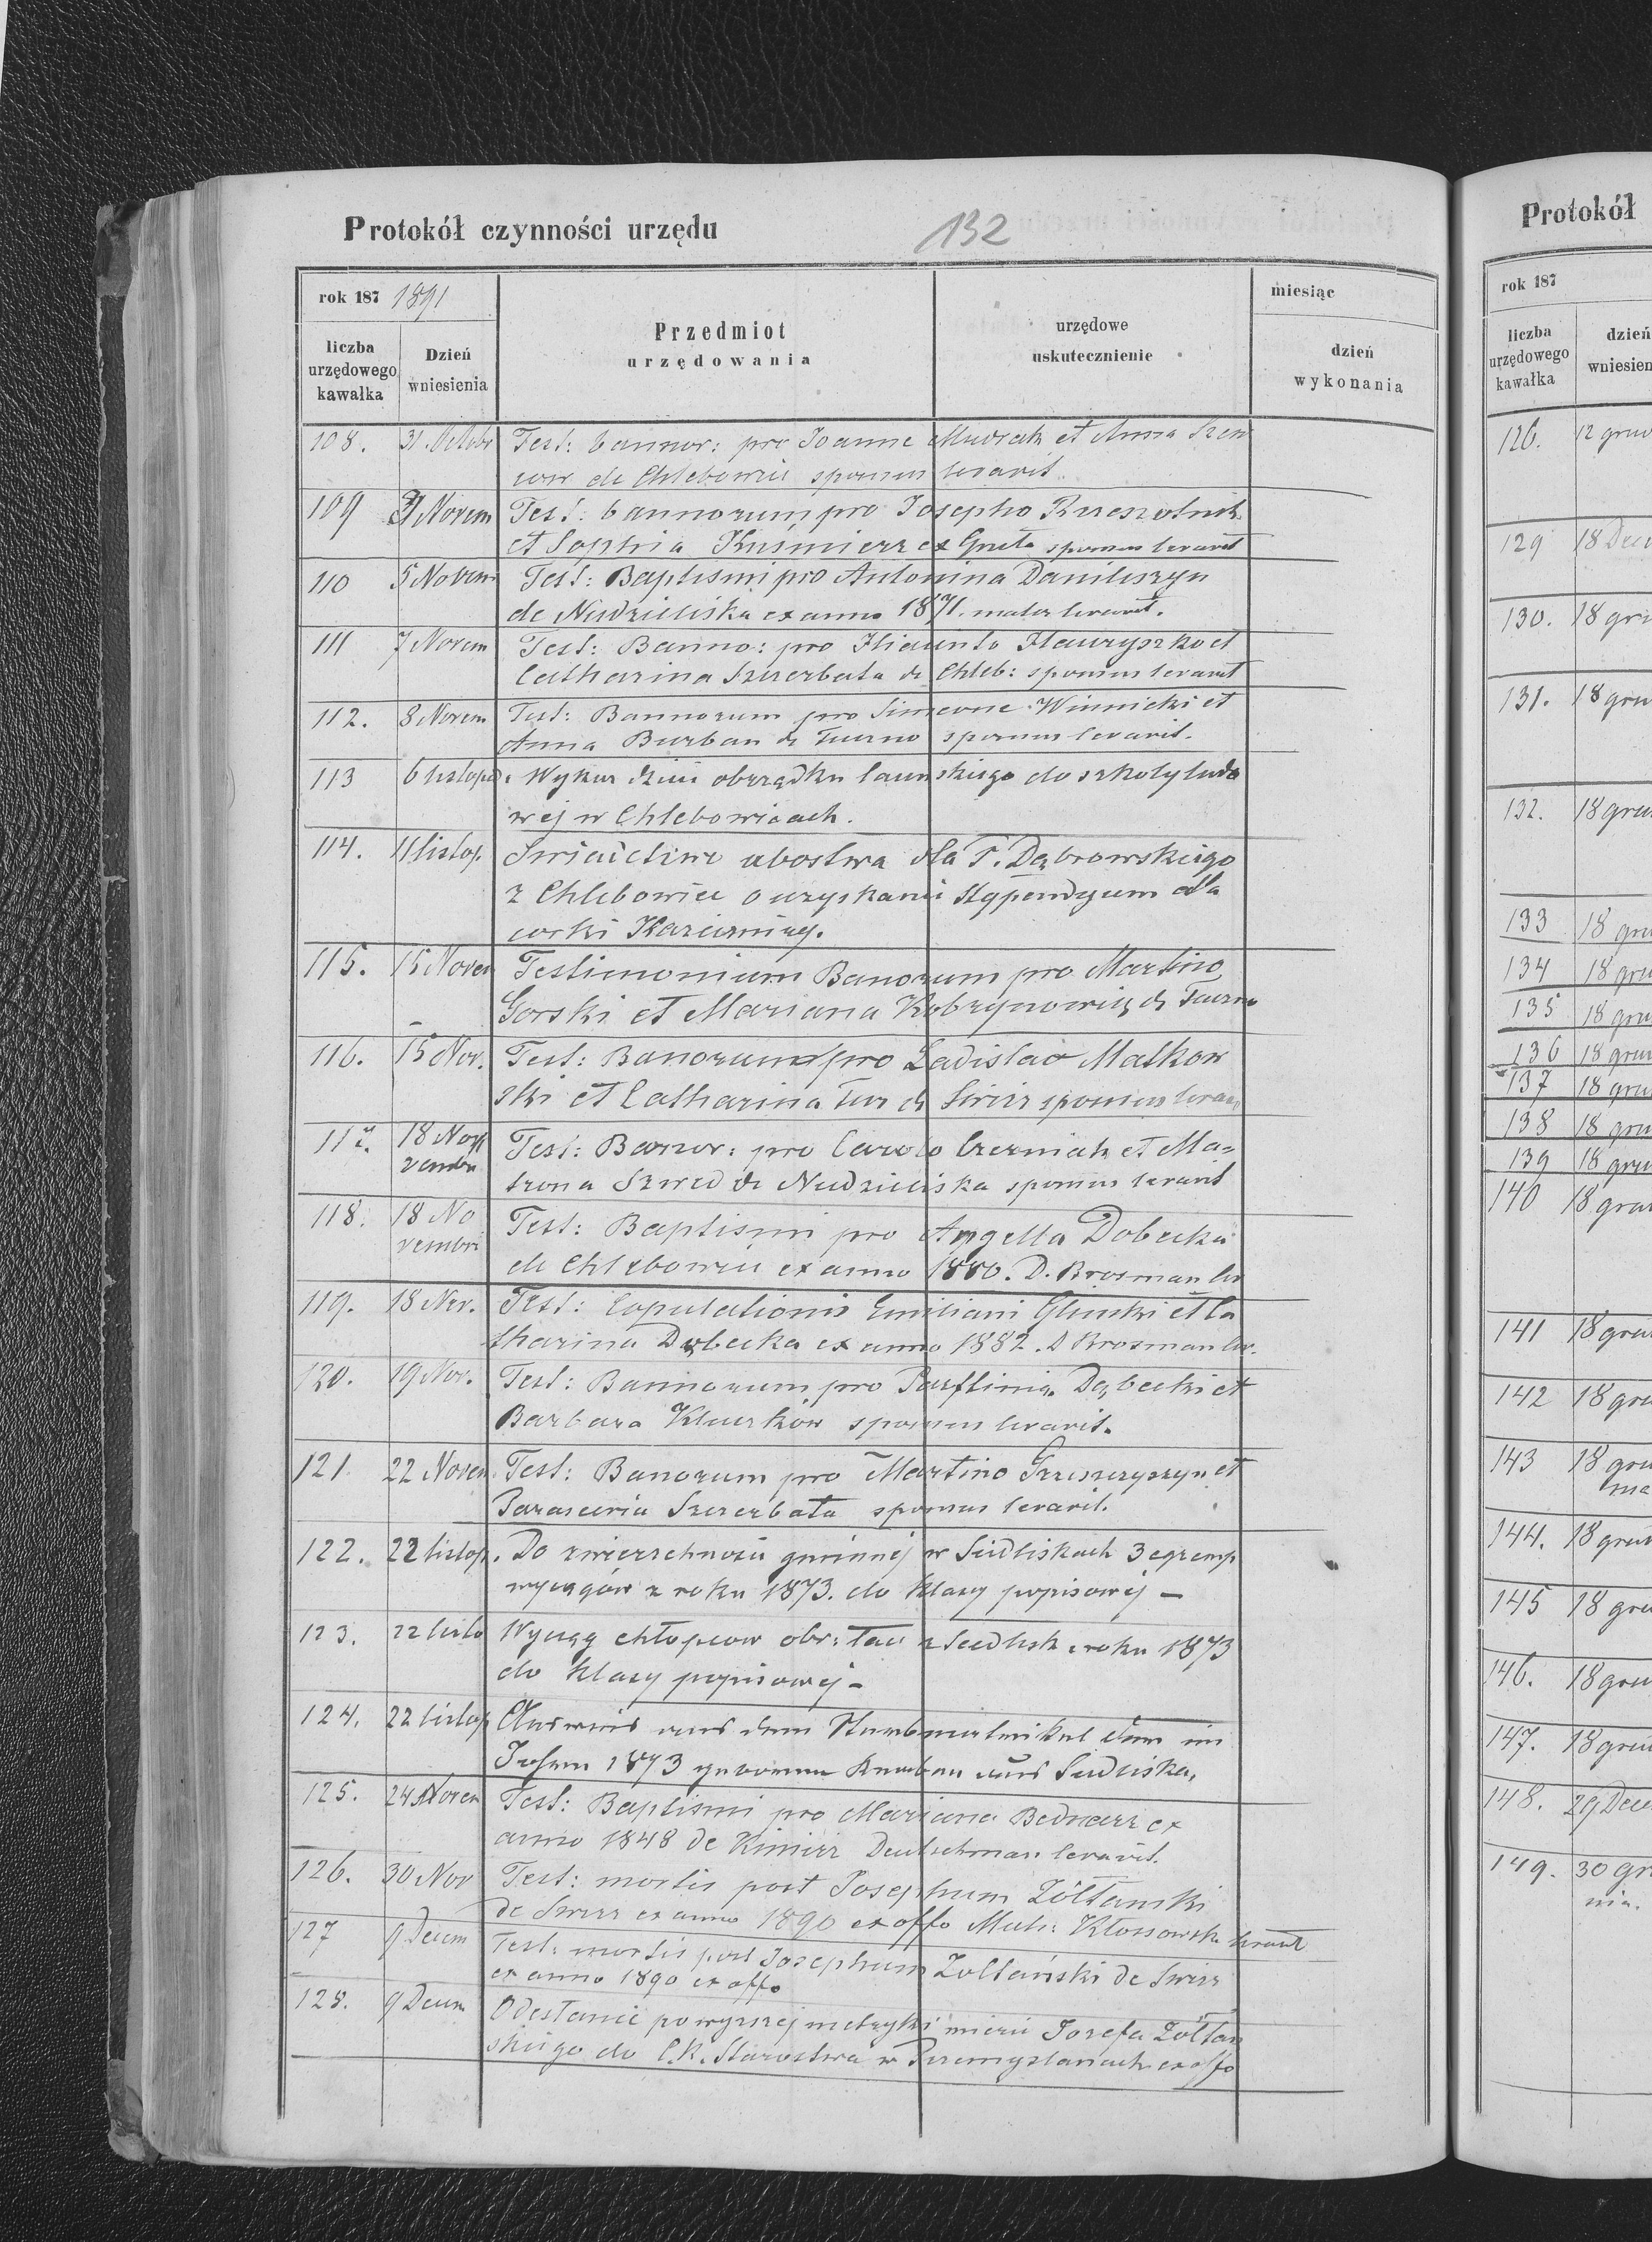 Protokół czynności urzędu
132
rok 187 1891
liczba urzędowego kawałka
Dzień wniesienia
Przedmiot urzędowania
urzędowe uskutecznienie
miesiąc
dzień wykonania
108. 31. Octobr Test: bannor: pro Joanne Mudrak et Anna
de Chlebowice sponsus levavit
109 3 Novem Test: bannorum pro Josepho
et Sophia Kuśmierz ex sponsus levavit
110 5 Novem Test: Baptismi pro Antonina Daniliszyn
de ex anno 1871. mater levavit.
111 7 Novem Test: Banno: pro Hawryszko et
Catharina Szczerbata de Chleb: sponsus levavit
112. 8 Novem Test: Bannorum pro Simeone Winnicki et
Anna Burban de sponsus levavit.
113 6 listopad. Wykaz dzieci obrządku łacińskiego do szkoły ludo
wej w Chlebowicach.
114. 11 listop. ubostwa dla P. Dąbrowskiego
z Chlebowic o uzyskanie stypendyum dla
corki
115. 15 Novem Testimonium Banorum pro Martino
Gorski et Mariana de
116. 15 Nov. Test: Banorum pro Ladislao Malkow
ski et Catharina Tur de Swirz sponsus levav
117. 18 No
vembr Test: Bannor: pro Carolo Czerniak et Ma=
trona Szwed de sponsus levavit
118. 18 No
vembri Test: Baptismi pro Angella Dobecka
de Chlebowice ex anno 1880. D. Brosman lev
119. 18 Nov. Test: Copulationis Emiliani Glinki et Ca
tharina Dąbecka ex anno 1882. D Brosman lev.
120. 19 Nov. Test: Bannorum pro Dąbecki et
Barbara sponsus levavit.
121. 22 Novem. Test: Banorum pro Martino et
Parascevia Szczerbata sponsus levavit.
122. 22 listop. Do zwierzchności gminnej w Siedliskach 3 egzemp
wyciągów z roku 1873. do klasy popisowej –
123. 22 listo Wyciąg chłopców obr: łac z Siedlisk z roku 1873
do klasy popisowej –
124. 22 listop Ausweis aus dem der im
Jahren 1873 geborenen Knaben aus Siedliska.
125. 24 Novem Test: Baptismi pro Mariana Bednarz ex
anno 1848 de Kimirz Deutschman levavit.
126. 30 Nov Test: mortis post Josephum Żółtański
de Swirz ex anno 1890 ex offo Kłossowsk levavit
127 9 Decem Test: mortis post Josephum Żołtański de Swirz
ex anno 1890 ex offo
128. 9 Decem Odesłanie powyższej metryki smierci Jozefa Żółtań
skiego do C.K. Starostwa w Przemyslanach ex offo
Protokół
rok 187
liczba urzędowego kawałka
dzień
126. 12
129 18
130. 18
131. 18
132. 18
133 18
134 18
135 18
136 18
137 18
138 18
139 18
140 18
141 18
142 18
143 18
144. 18
145 18
146. 18
147. 18
148. 29
149. 30